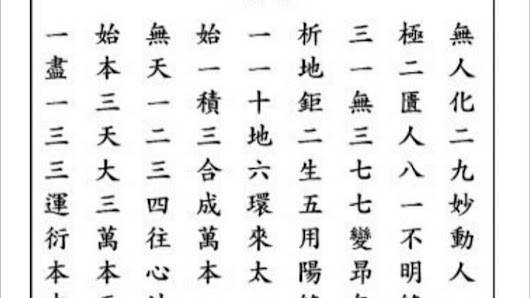 一始無始一析三極無
盡本天一一地一二人
一三一積十鉅無匱化
三天二三地二三人二
三大三合六生七八九
運三四成環五七一妙
衍萬往萬來用變不動
本本心本太陽昻明人